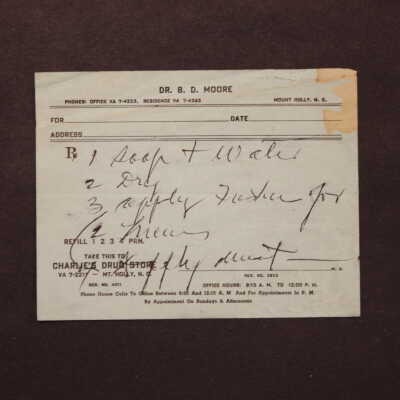 DR. B. D. MOORE
PHONES: OFFICE VA 7-4223, RESIDENCE VA 7-4263 MOUNT HOLLY, N. C.
FOR DATE
ADDRESS
℞ 1 Soap + Water
2 Dry
3 apply for
2
REFILL 1 2 3 4 PRN.
apply
TAKE THIS TO
CHARLIE'S DRUG STORE
VA 7-2271 - MT. HOLLY, N. C. M. D.
REG. NO. OFFICE HOURS: 9:15 A. M. TO 12:00 P. M.
Phone House Calls To Office Between 8:00 And 10:00 A. M And For Appointments In P. M.
By Appointment On Sundays & Afternoons